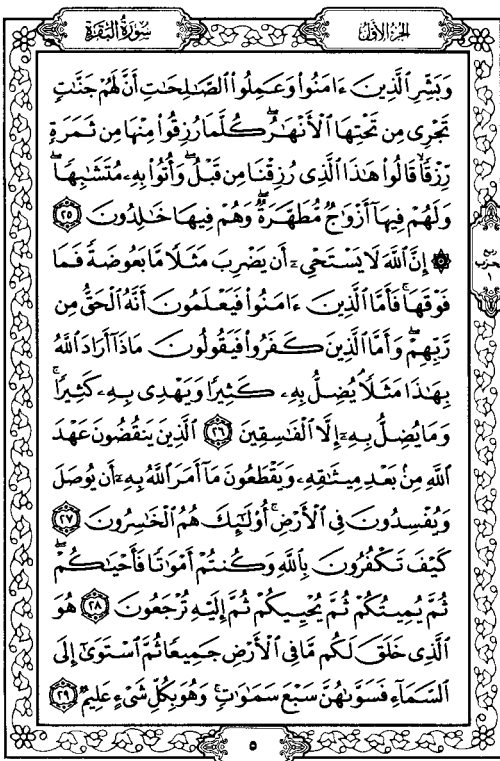 الجزء الأول
سورة البقرة
وَبَشِّرِ ٱلَّذِينَ ءَامَنُوا۟ وَعَمِلُوا۟ ٱلصَّٰلِحَٰتِ أَنَّ لَهُمْ جَنَّٰتٍ
تَجْرِى مِن تَحْتِهَا ٱلْأَنْهَٰرُ ۖ كُلَّمَا رُزِقُوا۟ مِنْهَا مِن ثَمَرَةٍ
رِّزْقًا ۙ قَالُوا۟ هَٰذَا ٱلَّذِى رُزِقْنَا مِن قَبْلُ ۖ وَأُتُوا۟ بِهِۦ مُتَشَٰبِهًا ۖ
وَلَهُمْ فِيهَآ أَزْوَٰجٌ مُّطَهَّرَةٌ ۖ وَهُمْ فِيهَا خَٰلِدُونَ ٢٥
۞ إِنَّ ٱللَّهَ لَا يَسْتَحْىِۦٓ أَن يَضْرِبَ مَثَلًا مَّا بَعُوضَةً فَمَا
فَوْقَهَا ۚ فَأَمَّا ٱلَّذِينَ ءَامَنُوا۟ فَيَعْلَمُونَ أَنَّهُ ٱلْحَقُّ مِن
رَّبِّهِمْ ۖ وَأَمَّا ٱلَّذِينَ كَفَرُوا۟ فَيَقُولُونَ مَاذَآ أَرَادَ ٱللَّهُ
بِهَٰذَا مَثَلًا ۘ يُضِلُّ بِهِۦ كَثِيرًا وَيَهْدِى بِهِۦ كَثِيرًا ۚ
وَمَا يُضِلُّ بِهِۦٓ إِلَّا ٱلْفَٰسِقِينَ ٢٦ ٱلَّذِينَ يَنقُضُونَ عَهْدَ
ٱللَّهِ مِنۢ بَعْدِ مِيثَٰقِهِۦ وَيَقْطَعُونَ مَآ أَمَرَ ٱللَّهُ بِهِۦٓ أَن يُوصَلَ
وَيُفْسِدُونَ فِى ٱلْأَرْضِ ۚ أُو۟لَٰٓئِكَ هُمُ ٱلْخَٰسِرُونَ ٢٧
كَيْفَ تَكْفُرُونَ بِٱللَّهِ وَكُنتُمْ أَمْوَٰتًا فَأَحْيَٰكُمْ ۖ
ثُمَّ يُمِيتُكُمْ ثُمَّ يُحْيِيكُمْ ثُمَّ إِلَيْهِ تُرْجَعُونَ ٢٨ هُوَ
ٱلَّذِى خَلَقَ لَكُم مَّا فِى ٱلْأَرْضِ جَمِيعًا ثُمَّ ٱسْتَوَىٰٓ إِلَى
ٱلسَّمَآءِ فَسَوَّىٰهُنَّ سَبْعَ سَمَٰوَٰتٍ ۚ وَهُوَ بِكُلِّ شَىْءٍ عَلِيمٌ ٢٩
٥